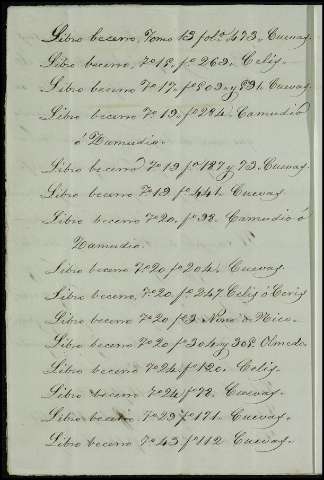 Libro becerro, Tomo 13 folº 473. Cuevas.
Libro becerro, Tº 18, fº 263. Celis.
Libro becerro, Tº 17, fº 803 y 831. Cuevas.
Libro becerro Tº 19. fº 284. Camudio
ó Zamudio.
Libro becerro Tº 19 fº 187 y 73. Cuevas.
Libro becerro Tº 19 fº 441. Cuevas.
Libro becerro Tº 20. fº 98. Camudio ó
Zamudio.
Libro becerro Tº 20 fº 204. Cuevas.
Libro becerro, Tº 20. fº 247. Celis ó Ceris
Libro becerro Tº 20 fº 3 Nino de Rico.
Libro becerro Tº 20 fº 304 y 308. Olmedo.
Libro becerro Tº 24 fº 120. Celis.
Libro becerro Tº 24 fº 72. Cuevas.
Libro becerro Tº 29 fº 171. Cuevas.
Libro becerro Tº 43 fº 112 Cuevas.